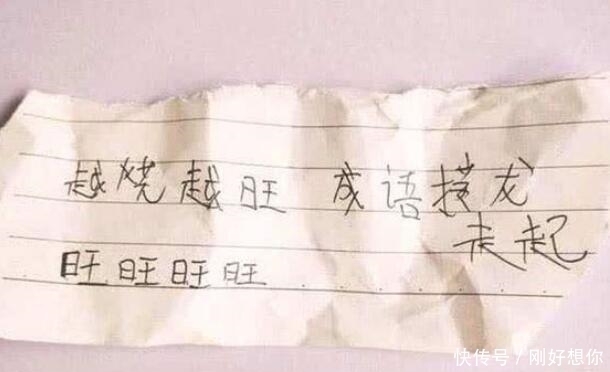 越烧越旺 成语接龙
走起
旺旺旺旺......
快传号/刚好想你